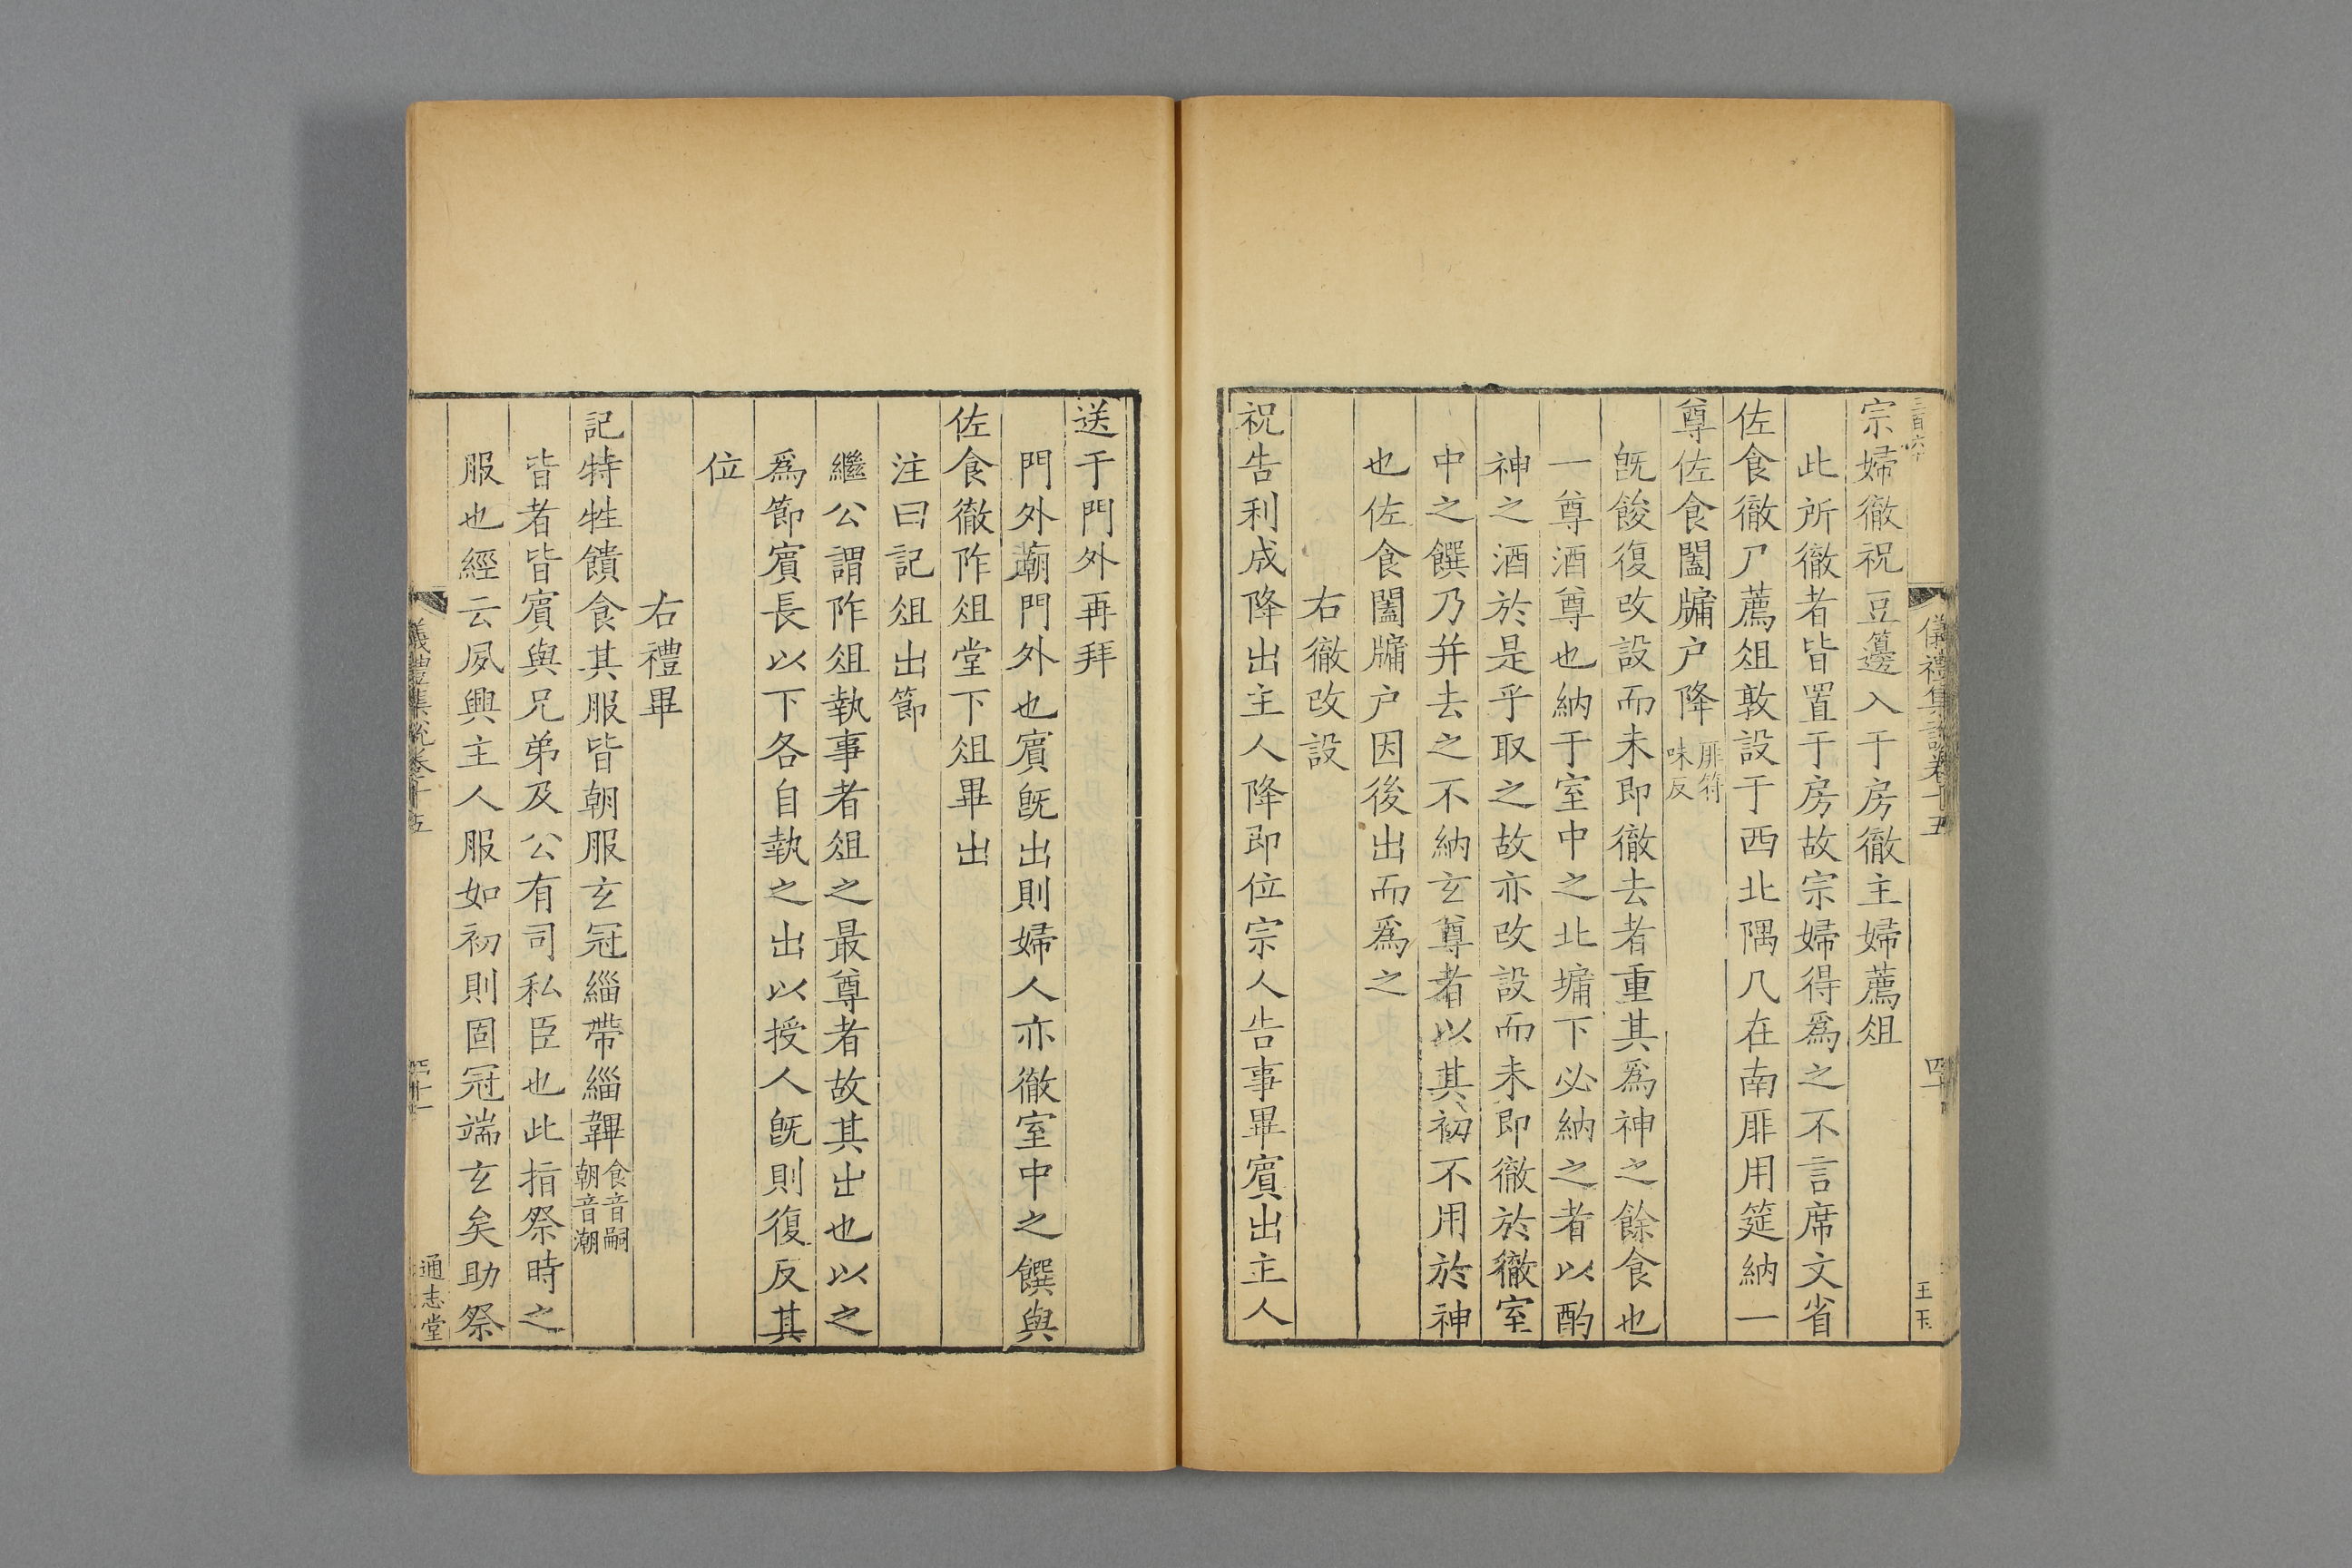 儀禮集說卷十五
四十
王玉
宗婦徹祝豆籩入于房徹主婦薦俎
此所徹者皆置于房故宗婦得爲之不言席文省
佐食徹尸薦俎敦設于西北隅几在南厞用筵納一
尊佐食闔牖户降厞符味反
旣餕復改設而未即徹去者重其爲神之餘食也
一尊酒尊也納于室中之北墉下必納之者以酌
神之酒於是乎取之故亦改設而未即徹於徹室
中之饌乃并去之不納玄尊者以其初不用於神
也佐食闔牖户因後出而爲之
右徹改設
祝告利成降出主人降即位宗人告事畢賓出主人
送于門外再拜
門外廟門外也賓旣出則婦人亦徹室中之饌與
佐食徹阼俎堂下俎畢出
注曰記俎出節
繼公謂阼俎執事者俎之最尊者故其出也以之
爲節賓長以下各自執之出以授人旣則復反其
位
右禮畢
記特牲饋食其服皆朝服玄冠緇帶緇韠食音嗣朝音潮
皆者皆賓與兄弟及公有司私臣也此指祭時之
服也經云夙興主人服如初則固冠端玄矣助祭
儀禮集說卷十五
四十一
通志堂